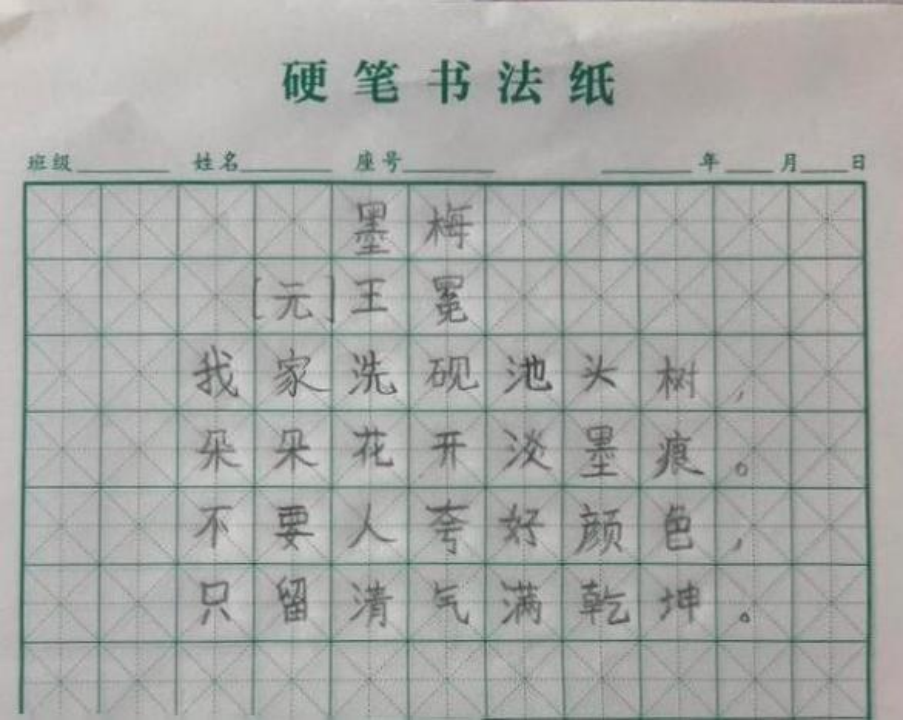 硬笔书法纸
班级 姓名 座号 年 月 日
墨梅
[元]王冕
我家洗砚池头树，
朵朵花开淡墨痕。
不要人夸好颜色，
只留清气满乾坤。